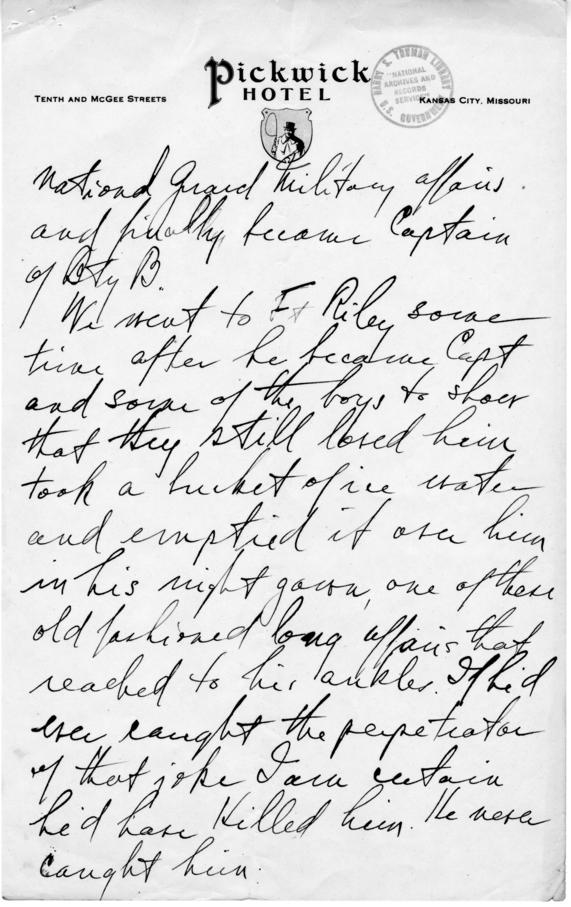 Pickwick
HOTEL
TENTH AND MCGEE STREETS
KANSAS CITY, MISSOURI
HARRY S. TRUMAN LIBRARY
"NATIONAL
ARCHIVES AND
RECORDS
SERVICE"
U.S. GOVERNMENT
National Guard Military affairs.
and finally became Captain
of Bty B.
We went to Ft Riley some
time after he became Capt
and some of the boys to show
that they still loved him
took a bucket of ice water
and emptied it over him
in his night gown, one of these
old fashioned long affairs that
reached to his ankles. If he'd
ever caught the perpetrator
of that joke I am certain
he'd have killed him. He never
caught him.